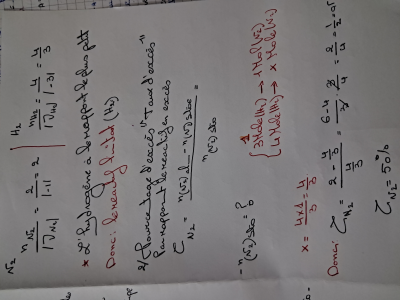 N2 | H2
nN2/|νN2| = 2/|-1| = 2 | nH2/|νH2| = 4/|-3| = 4/3
* L'hydrogène à le rapport le plus ptt
Donc: le réactif limitant (H2)
2/ Pourcentage d'excès "Taux d'excès"
Par rapport le réactif en excès
τN2 = n(N2) - n(N2) stoe / n(N2) sto
- n(N2) sto = ?
{ 3 Mole(H2) → 1 Mol(N2)
4 Mole(H2) → x Mole(N2)
x = 4x1/3 = 4/3
Donc: τ = 2 - 4/3 / 4/3 = 6-4/3 · 3/4 = 2/4 = 1/2 = 0,5
τN2 = 50%